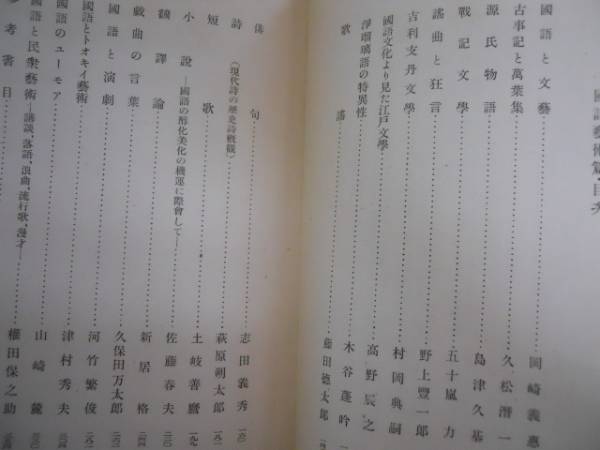 國語藝術篇目次
國語と文藝 岡崎義惠
古事記と萬葉集 久松潛一
源氏物語 島津久基
戰記文學 五十嵐力
謠曲と狂言 野上豐一郎
吉利支丹文學 村岡典嗣
國語文化より見た江戸文學 高野辰之
淨瑠璃語の特異性 木谷蓬吟
歌謠 藤田德太郎
俳句 志田義秀
詩 〔現代詩の歷史詩槪觀〕 萩原朔太郎
短歌 土岐善麿
小說 ―國語の醇化美化の機運に際會して― 佐藤春夫
飜譯論 新居格
戲曲の言葉 久保田万太郎
國語と演劇 河竹繁俊
國語とトオキイ藝術 津村秀夫
國語のユーモア 山崎
國語と民衆藝術 ―講談、落語、浪曲、流行歌、漫才― 權田保之助
考書目